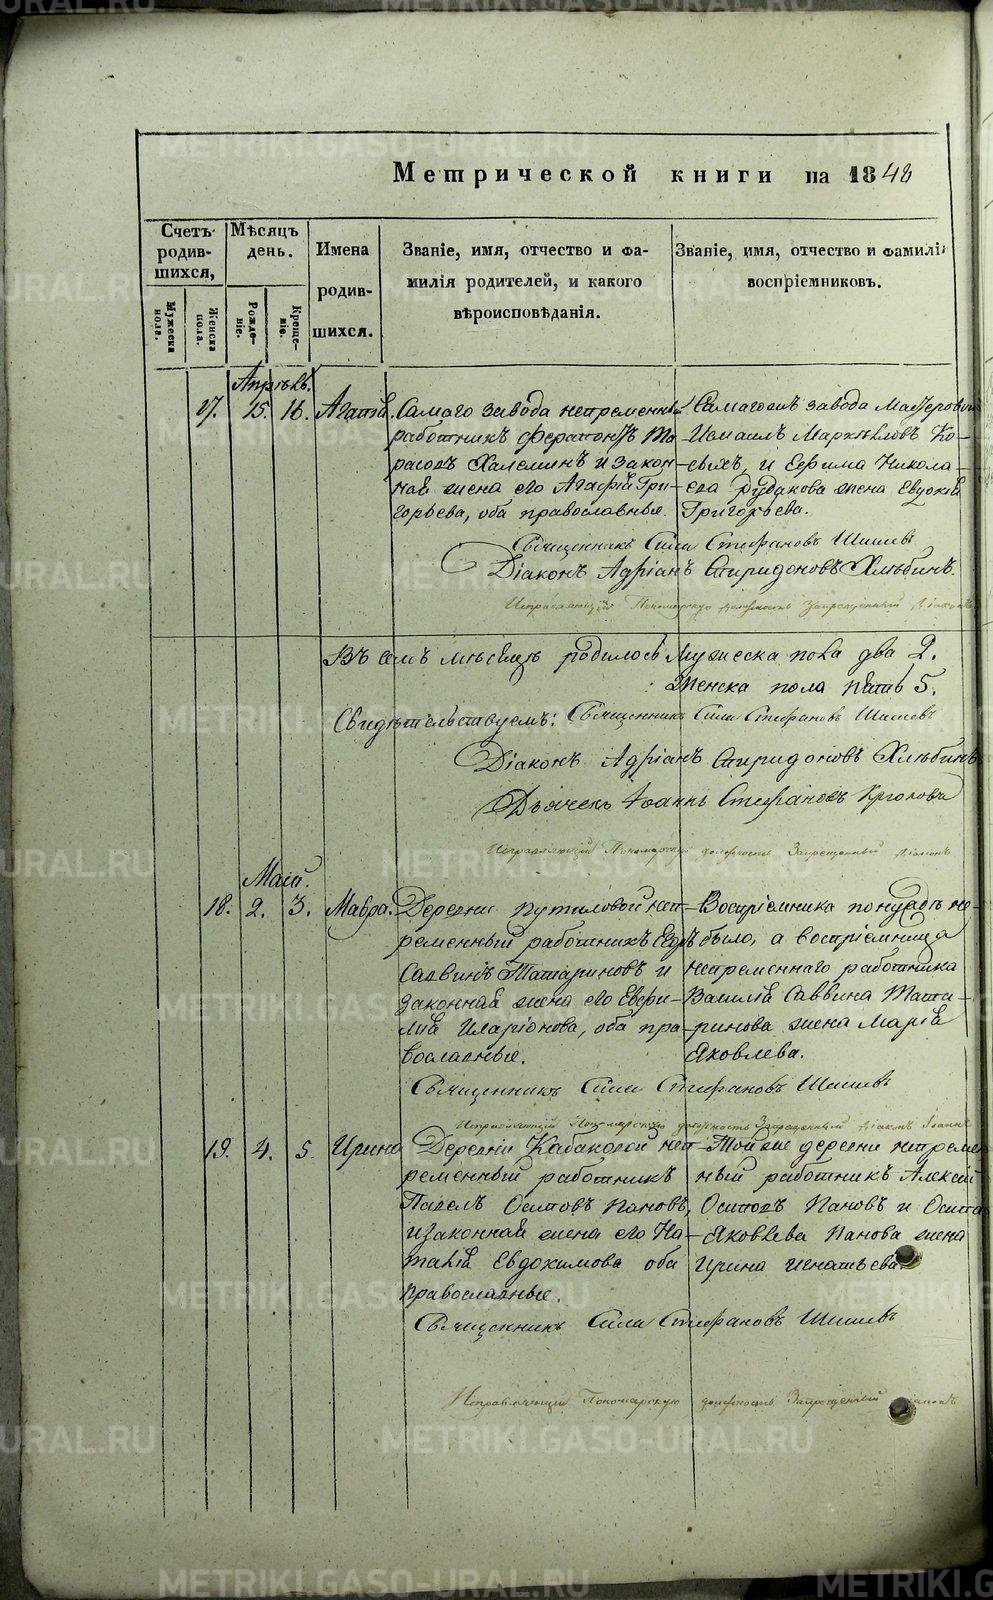 METRIKI.GASO-URAL.RU
Метрической книги на 1848
Счетъ родив-шихся,
Мѣсяцъ день.
Имена родив-шихся.
Званіе, имя, отчество и фа-
милія родителей, и какого
вѣроисповѣданія.
Званіе, имя, отчество и фамилія
воспріемниковъ.
Мужеска пола.
Женска пола.
Рожде-ніе.
Креще-ніе.
Апрѣль.
17. 15. 16.
Самаго завода непремѣнный
работникъ
и закон-
ная жена его Агафія Гри-
горьева, оба православные.
Самагожъ завода
и Ефима Никола-
ева Рудакова жена Евдокія
Григорьева.
Священникъ Сила Стефановъ Шишевъ
Діаконъ Адріанъ Спиридоновъ Хлѣбинъ.
Исправляющій Пономарскую должность Запрещенный Діаконъ
Въ семъ мѣсяцѣ родилось Мужеска пола два 2.
Женска пола пять 5.
Свидѣтельствуемъ: Священникъ Сила Стефановъ Шишевъ
Діаконъ Адріанъ Спиридоновъ Хлѣбинъ
Дьячекъ Іоаннъ Стефановъ
Исправляющій Пономарскую должность Запрещенный Діаконъ
Маій.
18. 2. 3. Мавра.
Деревни Путиловой неп-
ременный работникъ
Саввинъ Татариновъ и
законная жена его Евфи-
мія Иларіонова, оба пра-
вославные.
Воспріемника
было, а воспріемница
непременнаго работника
Василія Саввина Тата-
ринова жена Марія
Яковлева.
Священникъ Сила Стефановъ Шишевъ
Исправляющій Пономарскую должность Запрещенный Діаконъ Іоаннъ
19. 4. 5. Ирина
Деревни Кабаковой неп-
ременный работникъ
Павелъ Осиповъ Пановъ,
и законная жена его На-
талія Евдокимова оба
православные.
Той же деревни непремен
ный работникъ Алексій
Осиповъ Пановъ и Осипа
Яковлева Панова жена
Ирина Игнатьева.
Священникъ Сила Стефановъ Шишевъ
Исправляющій Пономарскую должность Запрещенный Діаконъ